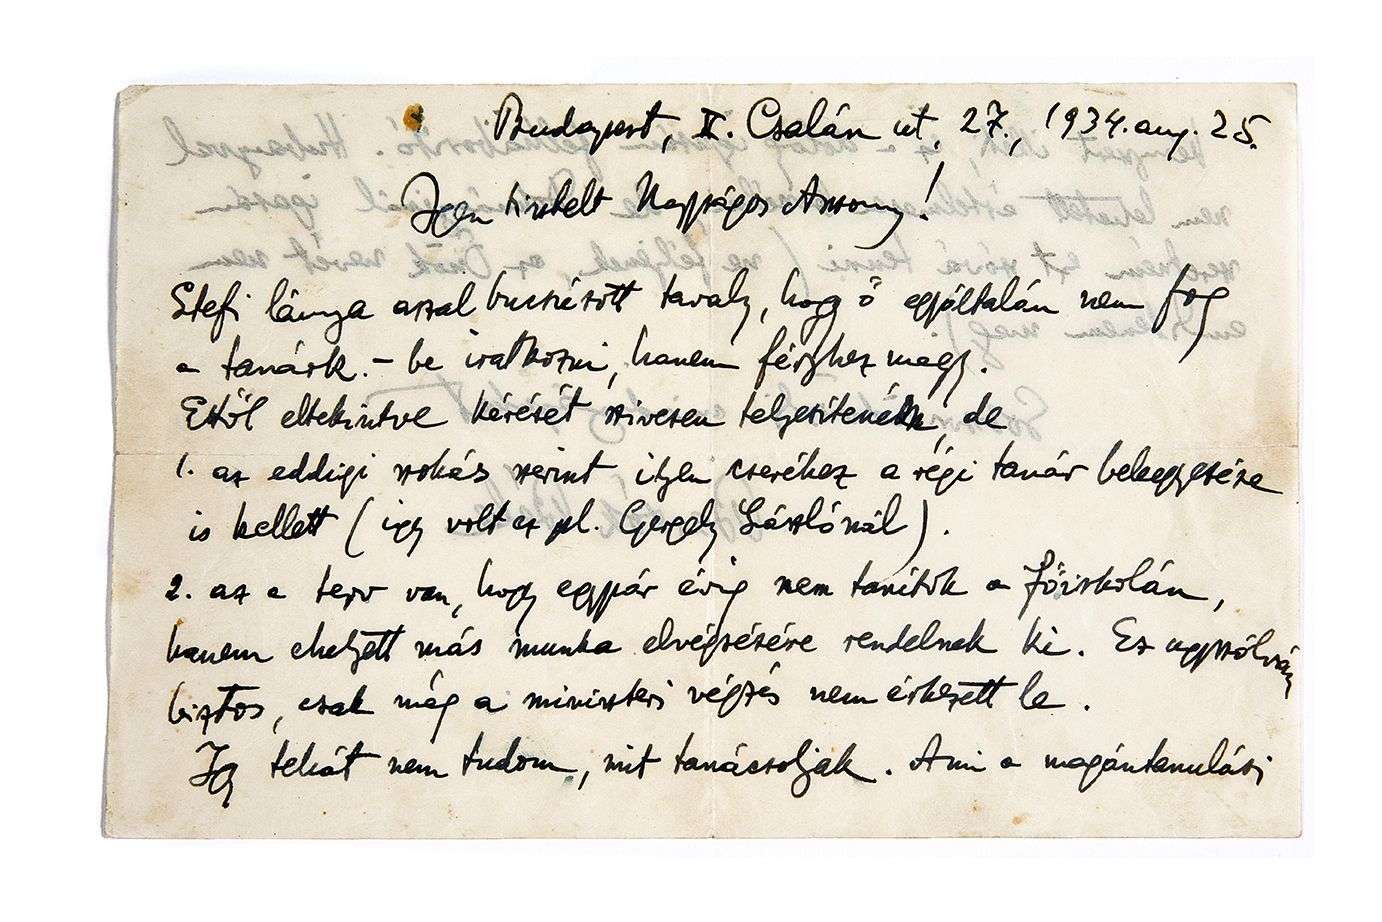 Budapest, II. Csalán ut, 27., 1934. aug. 25.
Igen tisztelt Nagyságos Asszony!
Stefi lánya azzal bucsúzott tavaly, hogy ő egyáltalán nem fog
a tanárk.- be iratkozni, hanem férjhez megy.
Ettől eltekintve kérését szivesen teljesíteném, de
1. az eddigi szokás szerint ilyen cseréhez a régi tanár beleegyezése
is kellett (igy volt ez pl. Gergely Lászlónál).
2. az a terv van, hogy egypár évig nem tanítok a Főiskolán,
hanem ehelyett más munka elvégzésére rendelnek ki. Ez ugyszólván
biztos, csak még a miniszteri végzés nem érkezett le.
Igy tehát nem tudom, mit tanácsoljak. Ami a magántanulási